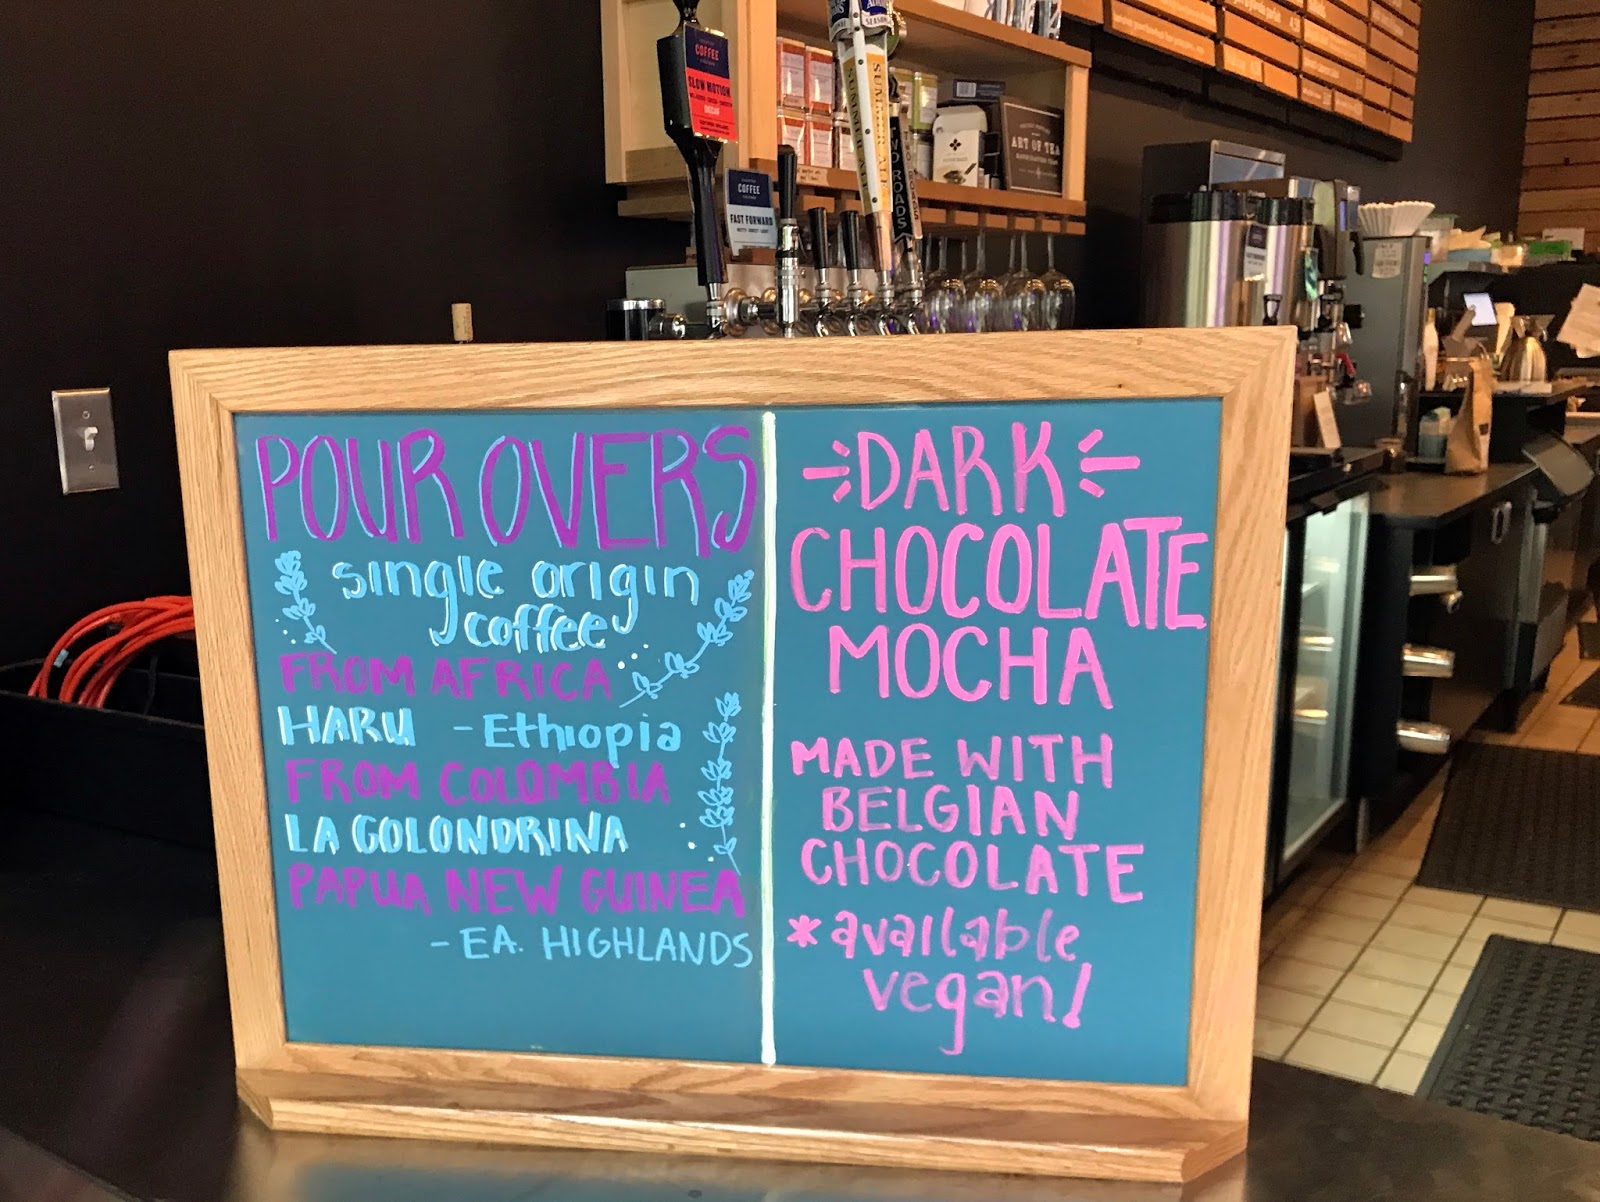 POUR OVERS
single origin
coffee
FROM AFRICA
HARU - Ethiopia
FROM COLOMBIA
LA GOLONDRINA
PAPUA NEW GUINEA
- EA. HIGHLANDS
DARK
CHOCOLATE
MOCHA
MADE WITH
BELGIAN
CHOCOLATE
*available
vegan!
COFFEE
SLOW MOTION
DECAF
COFFEE
FAST FORWARD
SUMMER ALE
TWO ROADS
ART OF TEA